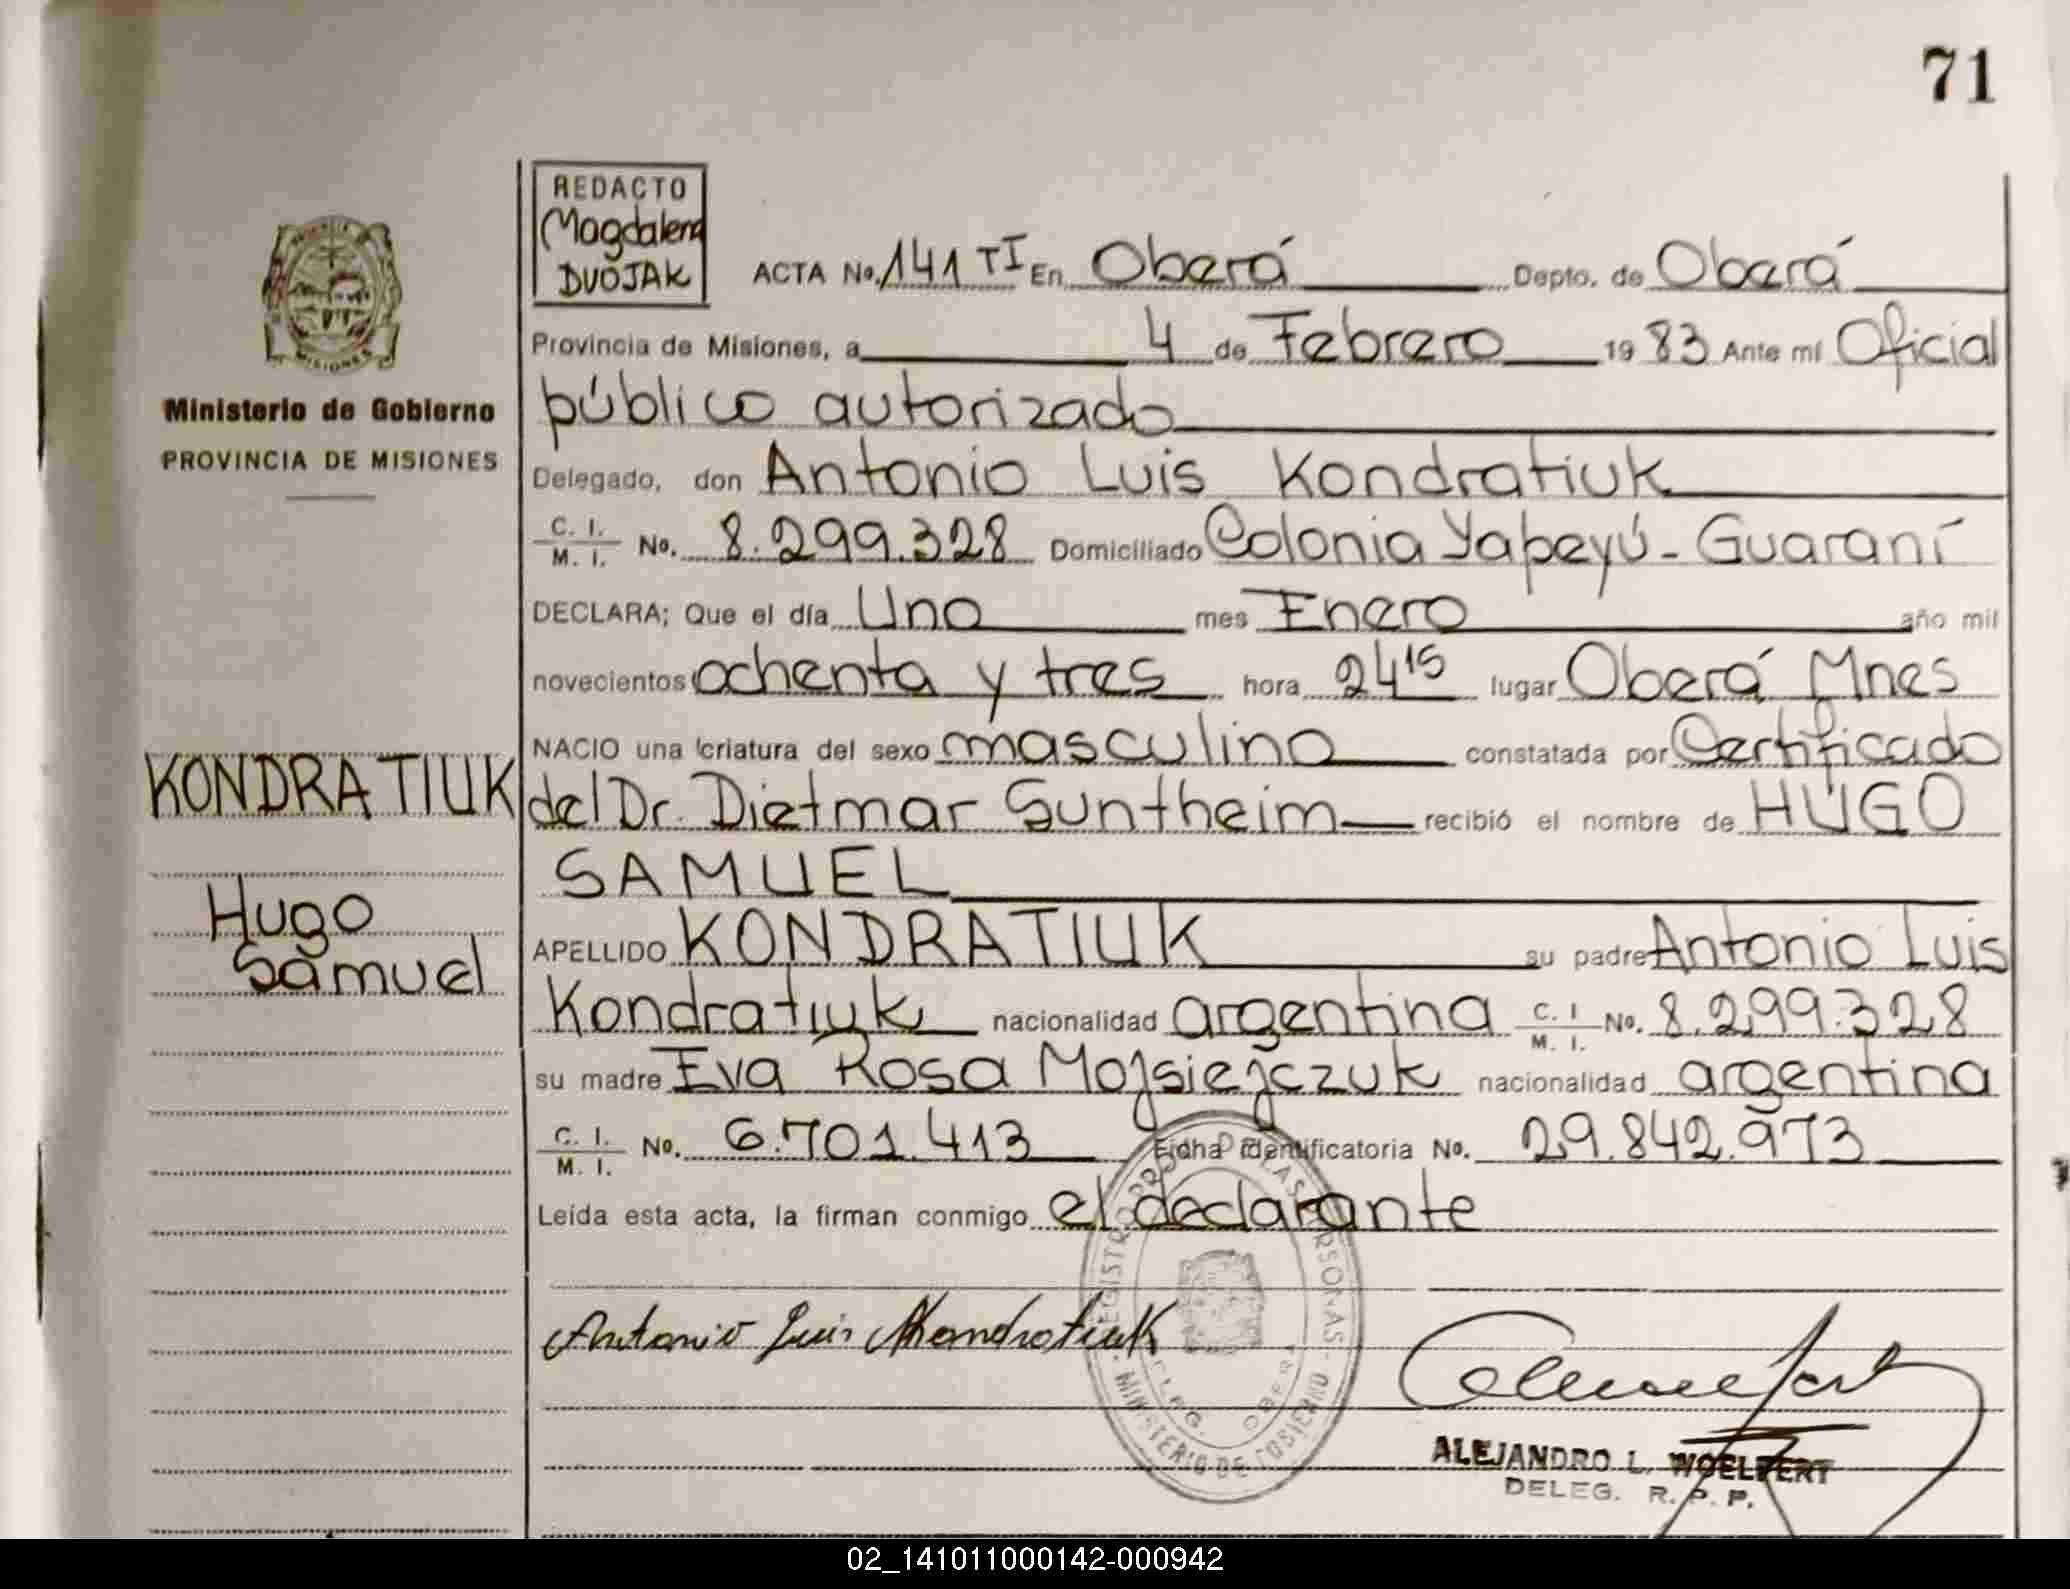 71
REDACTO
Magdalena
DVOJAK
ACTA No. 141 TI En Oberá Depto. de Oberá
Provincia de Misiones, a 4 de Febrero 1983 Ante mí Oficial
público autorizado
Delegado, don Antonio Luis Kondratiuk
C. I. / M. I. No. 8.299.328 Domiciliado Colonia Yapeyú - Guaraní
DECLARA; Que el día Uno mes Enero año mil
novecientos ochenta y tres hora 24 15 lugar Oberá Mnes
NACIO una criatura del sexo masculino constatada por Certificado
del Dr. Dietmar Suntheim recibió el nombre de HUGO
SAMUEL
APELLIDO KONDRATIUK su padre Antonio Luis
Kondratiuk nacionalidad argentina C. I. / M. I. No. 8.299.328
su madre Eva Rosa Mojsiejczuk nacionalidad argentina
C. I. / M. I. No. 6.701.413 Ficha Identificatoria No. 29.842.973
Leída esta acta, la firman conmigo el declarante
Antonio Luis Kondratiuk
ALEJANDRO L. WOELFERT
DELEG. R. P. P.
REGISTRO PROV. DE LAS PERSONAS
MINISTERIO DE GOBIERNO
DELEG. OBERA
MISIONES
Ministerio de Gobierno
PROVINCIA DE MISIONES
KONDRATIUK
Hugo
Samuel
02_141011000142-000942